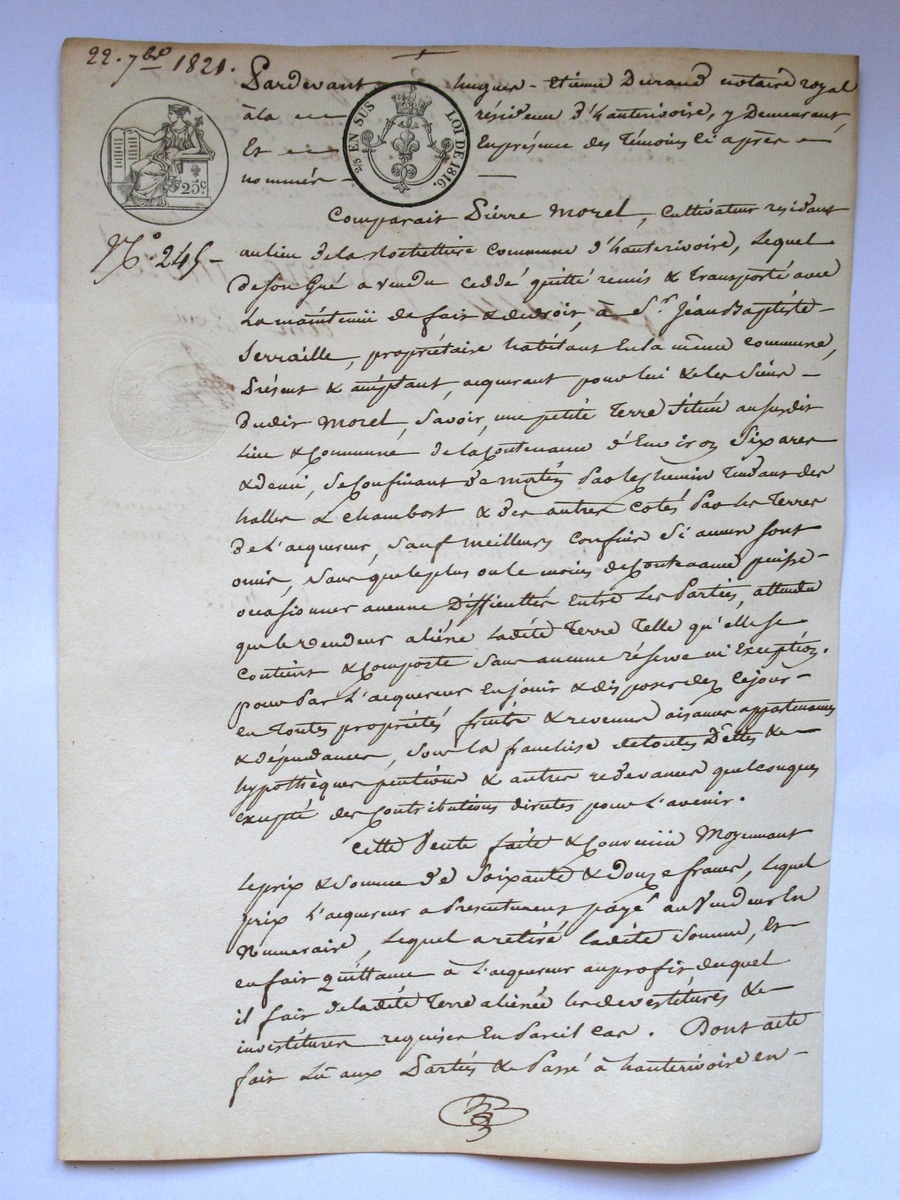 22. 7bre 1821.
Pardevant hugues - Etienne Durand notaire royal
à la résidence d'hauterivoire, y Demeurant,
Et En présence des Témoins ci après
nommés
25c
25c EN SUS LOI DE 1816.
Comparait Pierre Morel, cultivateur residant
N.o 245 -
au lieu de la commune d'hauterivoire, Lequel
De son Gré a vendu ceddé quitté remis & Transporté avec
La maintenüe de fait & de droit, à S.r Jéan Baptiste
Serraille, propriétaire habitant En la même commune,
Présent & acceptant, acquerant pour lui & les siens -
Dudit Morel, Savoir, une petite Terre Située au susdit
Lieu & Commune de la Contenance d'Environ Six ares
& demi, Se Confinant De matin Par le Chemin Tendant des
halles à Chambost & des autres Cotés Par les Terres
De L'acquereur, Sauf meilleurs Confins Si aucun Sont
omis, Sans que le plus ou le moins de Contenance puisse -
occasionner aucune Difficultés Entre Les Parties, attendu
que le Vendeur aliéne Ladite Terre Telle qu'elle se
Contient & Comporte Sans aucune réserve ni Exception.
pour Par L'acquereur En jouir & disposer dez ce jour -
en Toutes propriétés fruits & revenus aisances appartenances
& dépendances, Sous La franchise de toutes Dettes &
hypothèques pentions & autres redevances quelconques
excepté des Contributions directes pour l'avenir.
Cette Vente faite & Convenüe Moyennant
Le prix & Somme De Soixante & Douze francs, Lequel
prix L'acquereur a Presentement payé au Vendeur En
Numeraire, Lequel a retiré ladite Somme, Et
en fait quittance à L'acquereur au profit duquel
il fait de ladite Terre aliénée les devestitures &
investitures requises En Pareil cas. Dont acte
fait Lu aux Parties & Passé à hauterivoire en -